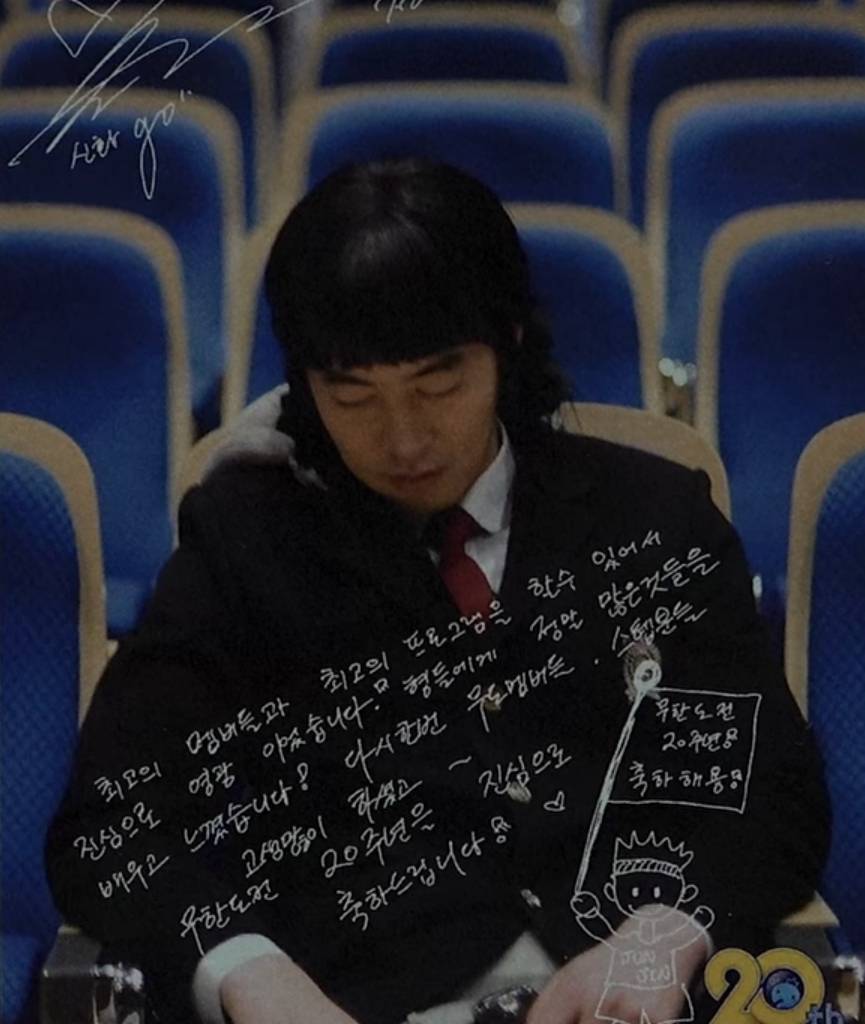 신화 go"
최고의 멤버들과 최고의 프로그램을 할수 있어서
진심으로 영광 이었습니다! 형들에게 정말 많은것들을
배우고 느꼈습니다! 다시한번 무도멤버들. 스텝분들
고생많이 하셨고 ~
무한도전 20주년을 진심으로
축하드립니다!
무한도전
20주년!
축하해용!
JUN
JIN
20th